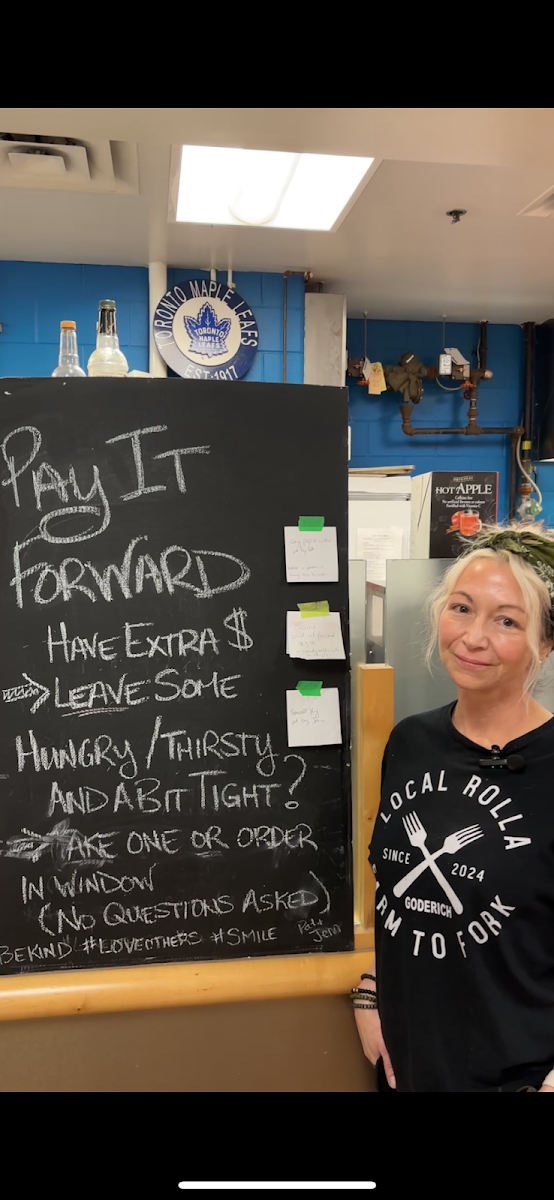 TORONTO MAPLE LEAFS
TORONTO
MAPLE
LEAFS
EST. 1917
PAY IT
FORWARD
HAVE EXTRA $
LEAVE SOME
HUNGRY/THIRSTY
AND A BIT TIGHT?
TAKE ONE OR ORDER
IN WINDOW
(NO QUESTIONS ASKED)
BE KIND #LOVEOTHERS #SMILE
HOT APPLE
LOCAL ROLLA
SINCE 2024
GODERICH
FARM TO FORK